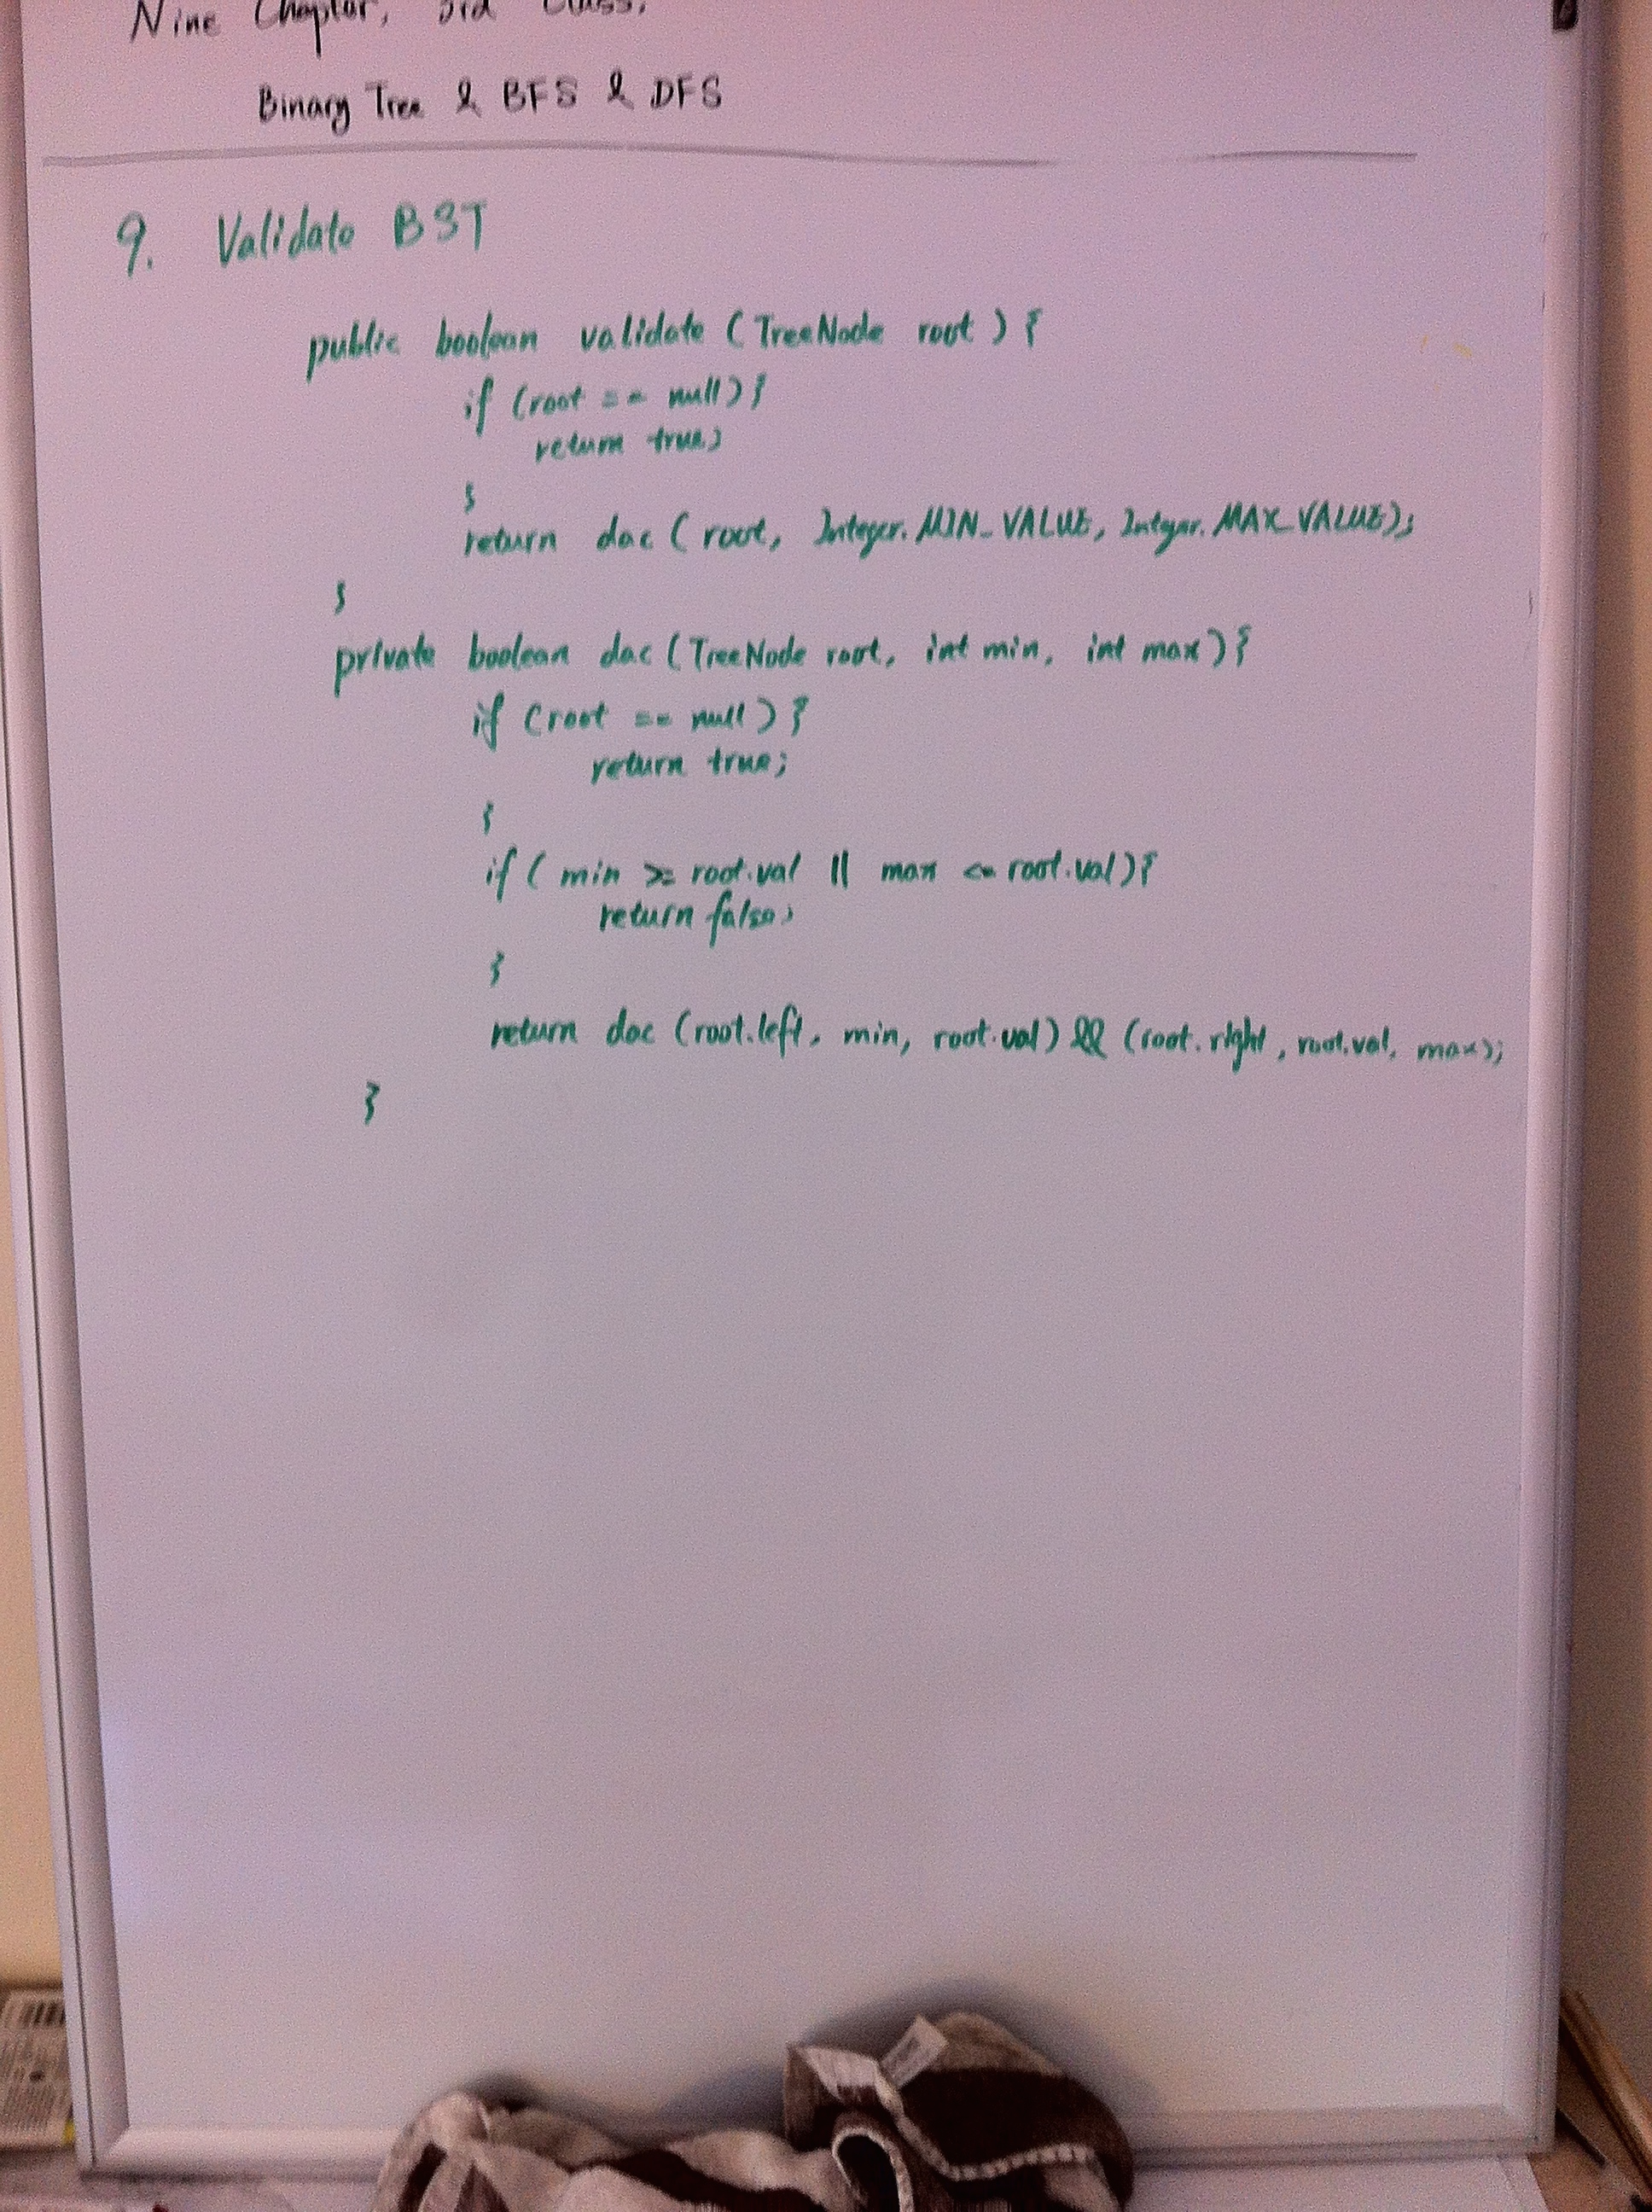 Nine Chapter, 3rd Class,
Binary Tree & BFS & DFS
9. Validate BST
public boolean validate (TreeNode root) {
if (root == null) {
return true;
}
return dac (root, Integer.MIN_VALUE, Integer.MAX_VALUE);
}
private boolean dac (TreeNode root, int min, int max) {
if (root == null) {
return true;
}
if ( min >= root.val || max <= root.val) {
return false;
}
return dac (root.left, min, root.val) && (root.right, root.val, max);
}